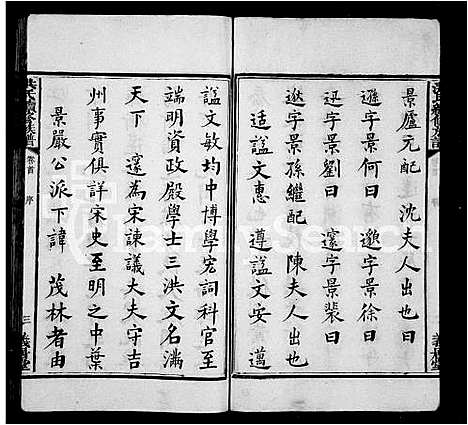 景廬元配 沈夫人出也曰
遜字景何曰 邀字景徐曰
迅字景劉曰 邃字景裴曰
逖字景孫繼配 陳夫人出也
适謚文惠 遵謚文安 邁
謚文敏均中博學宏詞科官至
端明資政殿學士三洪文名滿
天下 邃為宋諫議大夫守吉
州事實俱詳宋史至明之中葉
景嚴公派下諱 茂林者由
卷首 序
三
FamilySearch